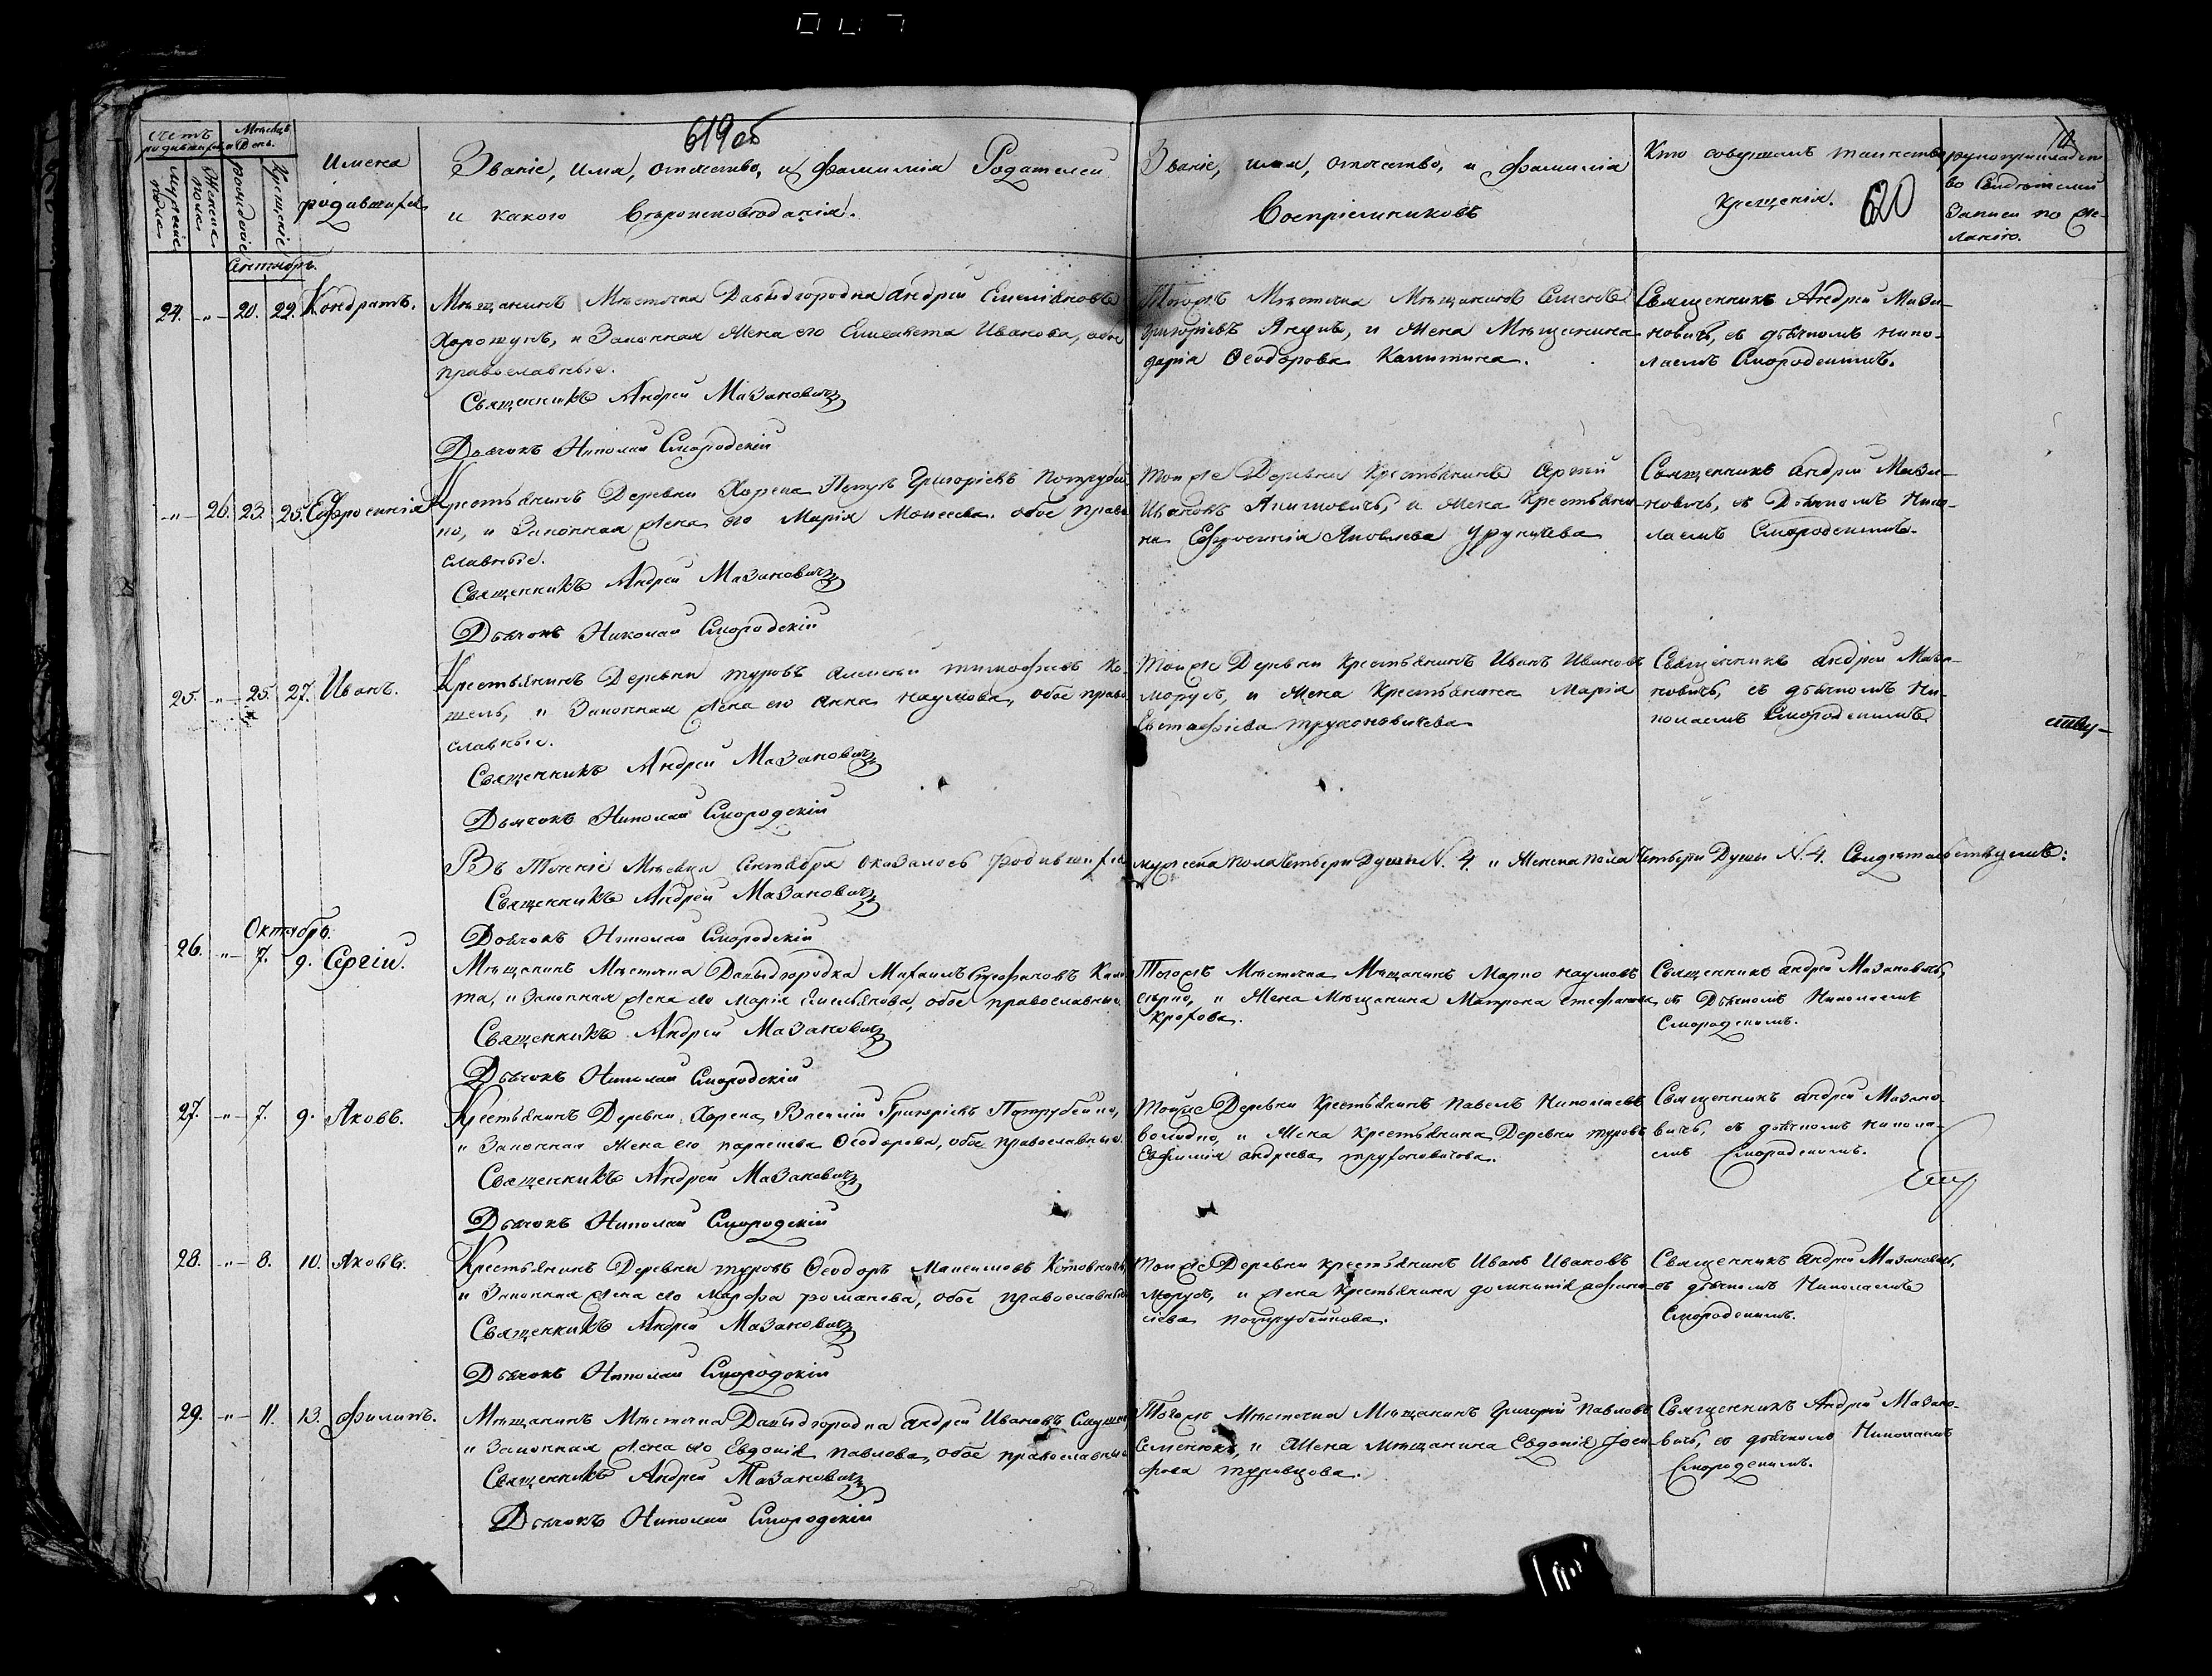 619 об
620
Счетъ родившихся
Мѣсяцъ и День.
Мужеска пола
Женска пола
Рожденіе
Крещеніе
Имена
родившихся
Званіе, имя, отчество, и фамилія Родителей
и какого Вѣроисповѣданія.
Званіе, имя, отчество, и фамилія
Воспріемниковъ
Кто совершалъ таинство
крещенія.
рукоприкладст
во Свидѣтелей
Записи по же-
ланію.
Сентябрь.
24. -"- 20. 22. Кондратъ.
Мѣщанинъ Мѣстечка Давыдгородка Андрей Емеліановъ
Хорошунъ, и Законная Жена его Елисавета Иванова, обое
православные.
Священникъ Андрей Мазановичъ
Дьячокъ Николай Смородскій
Тогожъ Мѣстечка Мѣщанинъ Семенъ
Григоріевъ, и Жена Мѣщанина
Дарія Ѳеодорова.
Священникъ Андрей Маза-
новичъ, съ дьячкомъ Нико-
лаемъ Смородскимъ.
-"- 26. 23. 25. Евфросинія
Крестьянинъ Деревни Хорска Петръ Григорьевъ Потрубей
ко, и Законная Жена его Марія Моисеева, обое право
славные.
Священникъ Андрей Мазановичъ
Дьячокъ Николай Смородскій
Той же Деревни Крестьянинъ Сергій
Ивановъ, и Жена Крестьяни-
на Евфросинія Яковлева
Священникъ Андрей Маза-
новичъ, съ Дьячкомъ Нико-
лаемъ Смородскимъ.
25. -"- 25. 27. Иванъ.
Крестьянинъ Деревни Туровъ Алексѣй Тимофѣевъ Ко-
шель, и Законная Жена его Анна Наумова, обое право
славные.
Священникъ Андрей Мазановичъ
Дьячокъ Николай Смородскій
Той же Деревни Крестьянинъ Иванъ Ивановъ
Моругъ, и Жена Крестьянина Марія
Евстафіева Трухоновичева
Священникъ Андрей Маза-
новичъ, съ дьячкомъ Ни-
колаемъ Смородскимъ
Въ Теченіе Мѣсяца Сентября оказалось родившихся мужеска пола Четыри Души N. 4. и Женска пола Четыри Души N. 4. Свидѣтельствуемъ:
Священникъ Андрей Мазановичъ
Дьячокъ Николай Смородскій
Октябрь.
26. -"- 7. 9. Сергій.
Мѣщанинъ Мѣстечка Давыдгородка Михаилъ Стефановъ
та, и Законная Жена его Марія Емельянова, обое православные
Священникъ Андрей Мазановичъ
Дьячокъ Николай Смородскій
Тогожъ Мѣстечка Мѣщанинъ Марко Наумовъ
и Жена Мѣщанина Матрона Стефанова
Священникъ Андрей Мазановичъ,
съ Дьячкомъ Николаемъ
Смородскимъ.
27. -"- 7. 9. Яковъ.
Крестьянинъ Деревни Хорска Василій Григорьевъ Потрубейко,
и Законная Жена его Параскева Ѳеодорова, обое православные.
Священникъ Андрей Мазановичъ
Дьячокъ Николай Смородскій
Той же Деревни Крестьянинъ Павелъ Николаевъ
Володко, и Жена Крестьянина Деревни Туровъ
Евфимія Андреева Трухоновичова.
Священникъ Андрей Мазано-
вичъ, съ дьячкомъ Никола-
емъ Смородскимъ.
28. -"- 8. 10. Яковъ.
Крестьянинъ Деревни Туровъ Ѳеодоръ Максимовъ
и Законная Жена его Марфа Романова, обое православные
Священникъ Андрей Мазановичъ
Дьячокъ Николай Смородскій
Той же Деревни крестьянинъ Иванъ Ивановъ
Моругъ, и Жена Крестьянина Домникія Афана-
сіева Потрубейкова.
Священникъ Андрей Мазановичъ,
съ дьячкомъ Николаемъ
Смородскимъ.
29. -"- 11. 13. Филипъ.
Мѣщанинъ Мѣстечка Давыдгородка Андрей Ивановъ
и Законная Жена его Евдокія Павлова, обое православные
Священникъ Андрей Мазановичъ
Дьячокъ Николай Смородскій
Тогожъ Мѣстечка Мѣщанинъ Григорій Павловъ
Семенюкъ, и Жена Мѣщанина Евдокія Іоси-
фова Туровцова.
Священникъ Андрей Мазано-
вичъ, съ дьячкомъ Николаемъ
Смородскимъ.